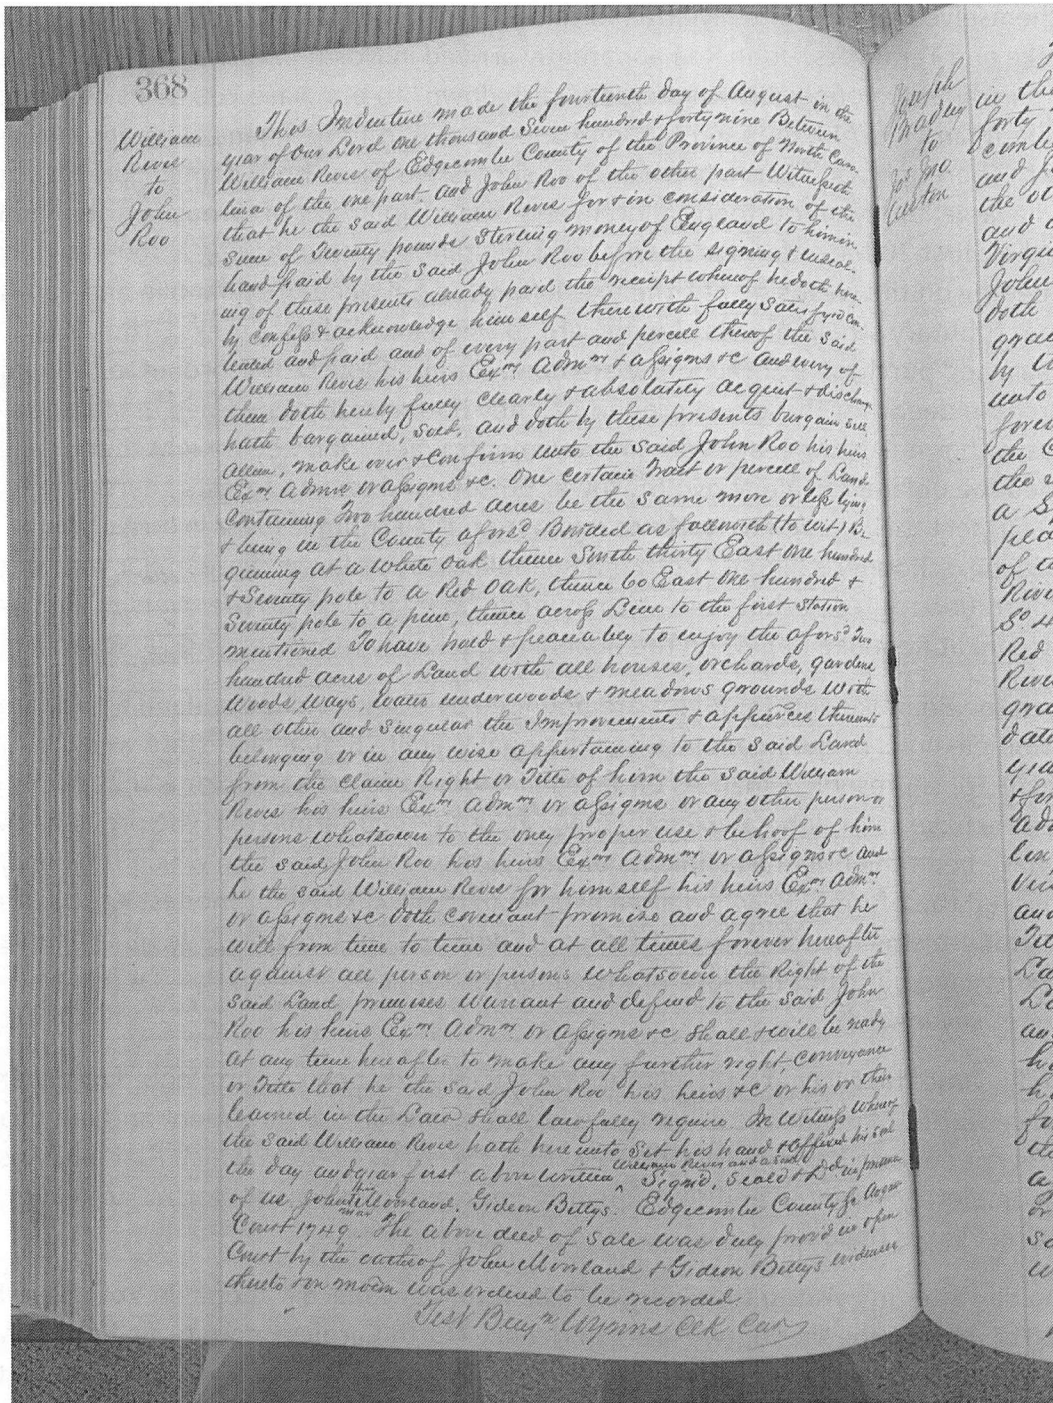 368
William
Revis
to
John
Roo
This Indenture made the fourteenth day of August in the
year of Our Lord One thousand Seven hundred & forty nine Between
William Revis of Edgecombe County of the Province of North Caro-
lina of the one part, and John Roo of the other part Witnesseth
that he the said William Revis for & in consideration of the
Sum of Twenty pounds Sterling money of England to him in
hand paid by the Said John Roo before the signing & unseal-
ing of these presents already paid the receipt whereof he doth here-
by confess & acknowledge himself therewith fully Satisfyed Con-
tented and paid and of every part and percell thereof the Said
William Revis his heirs Exrs Admrs & assigns &c and every of
them doth hereby fully clearly & absolutely acquit & discharge
hath bargained, Sold, and doth by these presents bargain Sell
alien, make over & Confirm unto the said John Roo his heirs
Exrs Admrs or assigns &c. One certain Tract or percell of Land
Containing Two hundred acres be the Same more or less lying
& being in the County aforsd Bounded as followeth (to wit) Be-
gining at a White Oak thence South thirty East One hundred
& Seventy pole to a Red Oak, thence 60 East One hundred &
Seventy pole to a pine, thence across Line to the first Station
mentioned To have hold & peaceabley to enjoy the aforsd Two
hundred acres of Land with all houses, orchards, gardens
Woods Ways, Water underwoods & meadows grounds with
all other and Singular the Improvements & appurces thereunto
belonging or in any wise appertaining to the Said Land
from the Claim Right or Title of him the Said William
Revis his heirs Exrs Admrs or assigns or any other person or
persons whatsover to the only proper use & behoof of him
the said John Roo his heirs Exrs Admrs or assigns &c and
he the said William Revis for himself his heirs Exrs Admrs
or assigns &c doth covenant promise and agree that he
will from time to time and at all times forever hereafter
against all person or persons Whatsover the Right of the
said Land premises Warrant and defend to the Said John
Roo his heirs Exrs Admrs or assigns &c shall & will be ready
at any time hereafter to make any further right, Conveyance
or Title that he the Said John Roo his heirs &c or his or their
learned in the Law shall lawfully require In Witness Whereof
the said William Revis hath hereunto Set his hand & Affixed his Seal
the day and year first above written William Revis and a Seal Signd, Seald & Dd in presence
of us John his mark Moorland, Gideon Bettys. Edgecombe County Sc August
Court 1749. The above deed of Sale was duly prov'd in open
Court by the oaths of John Moorland & Gideon Bettys evidences
thereto & on mocon was ordered to be recorded.
Test Benjn. Wynns Clk Cur
Joseph
Bradley
to
Jno.
in the
forty
and
the
and
Virgi
John
doth
gra
by
unto
the
the
a S
of a
Rive
Red
Rive
gra
date
yea
and